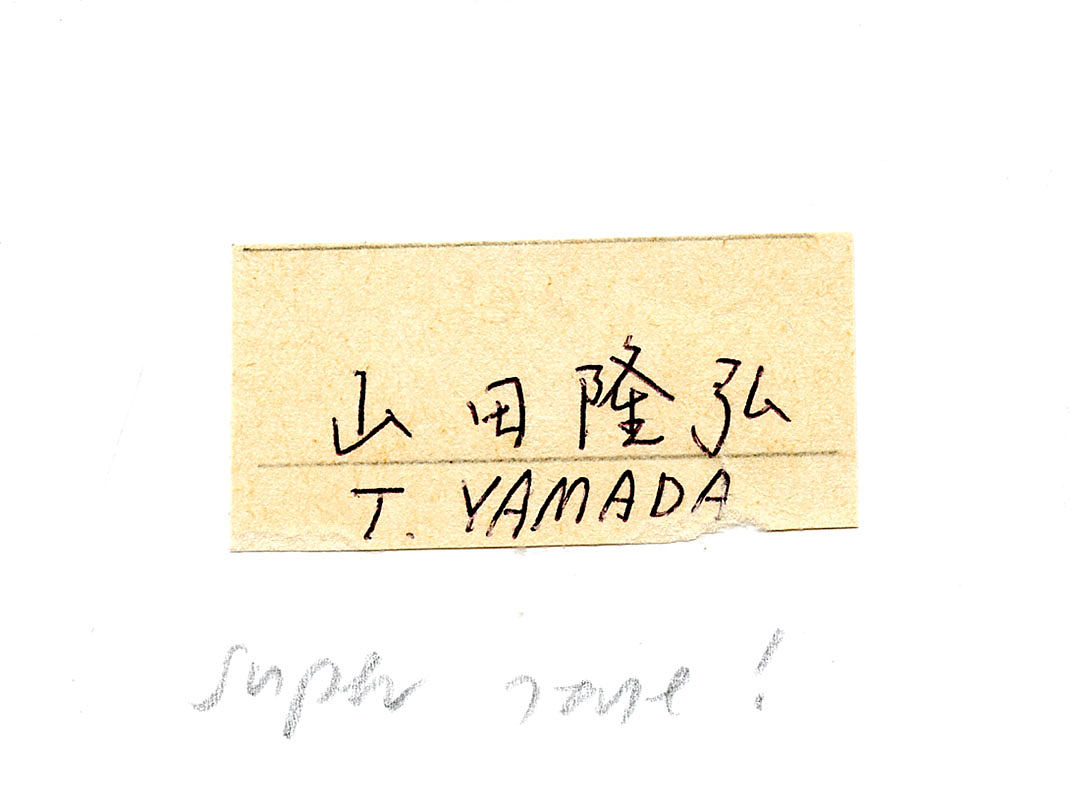 山田隆弘
T. YAMADA
super rare!